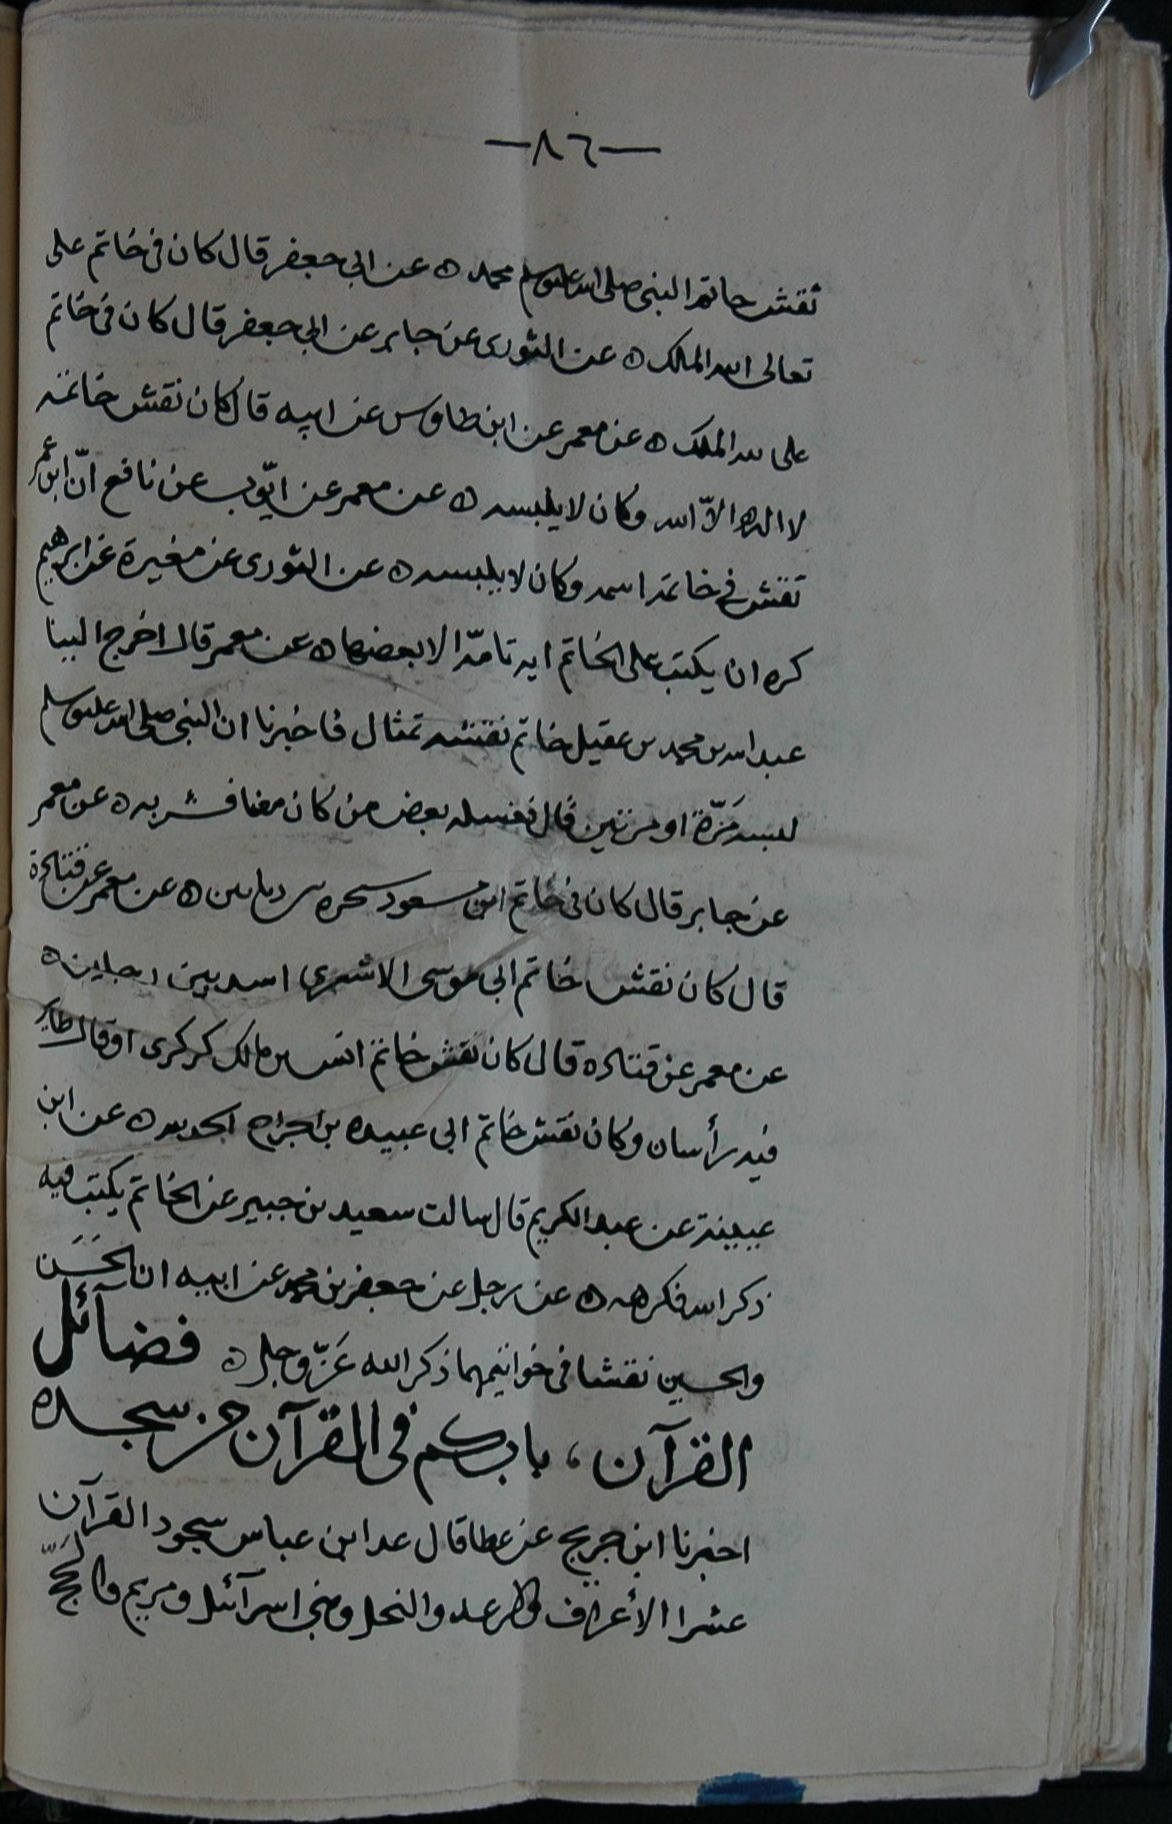 —٨٦—
نقش خاتم النبى صلى الله عليه وسلم محمد ه عن ابى جعفر قال كان فى خاتم على
تعالى الله الملك ه عن الثورى عن جابر عن ابى جعفر قال كان فى خاتم
على لله الملك ه عن معمر عن ابن طاوس عن ابيه قال كان نقش خاتمه
لا اله الاّ الله وكان لا يلبسه ه عن معمر عن ايّوب عن نافع انّ ابن عمر
نقش فى خاتمه اسمه وكان لا يلبسه ه عن الثورى عن مغيرة عن ابرهيم
كره ان يكتب على الخاتم ايه تامّه الا بعضها ه عن معمر قال اخرج الينا
عبد الله بن محمد بن عقيل خاتم نقشه تمثال فاخبرنا ان النبى صلى الله عليه وسلم
لبسه مَرّة او مرتين قال فغسله بعض من كان معنا فشربه ه عن معمر
عن جابر قال كان فى خاتم ابن مسعود ه عن معمر عن قتادة
قال كان نقش خاتم ابى موسى الاشعرى اسد بين رجلين ه
عن معمر عن قتاده قال كان نقش خاتم انس بن مالك كركرى او قال طاير
فيه رأسان وكان نقش خاتم ابى عبيده بن الجراح الحمد لله ه عن ابن
عيينة عن عبد الكريم قال سالت سعيد بن جبير عن الخاتم يكتب فيه
ذكر الله فكرهه ه عن رجل عن جعفر بن محمد عن ابيه ان الحَسَن
والحسين نقشا فى خواتيمهما ذكر الله عَزّ وجل ه فضآئل
القرآن ، باب كم فى القرآن من سجده
اخبرنا ابن جريج عن عطا قال عد ابن عباس سجود القرآن
عشرا الأعراف والرعد والنحل وبنى اسرآئل ومريم والحَجّ